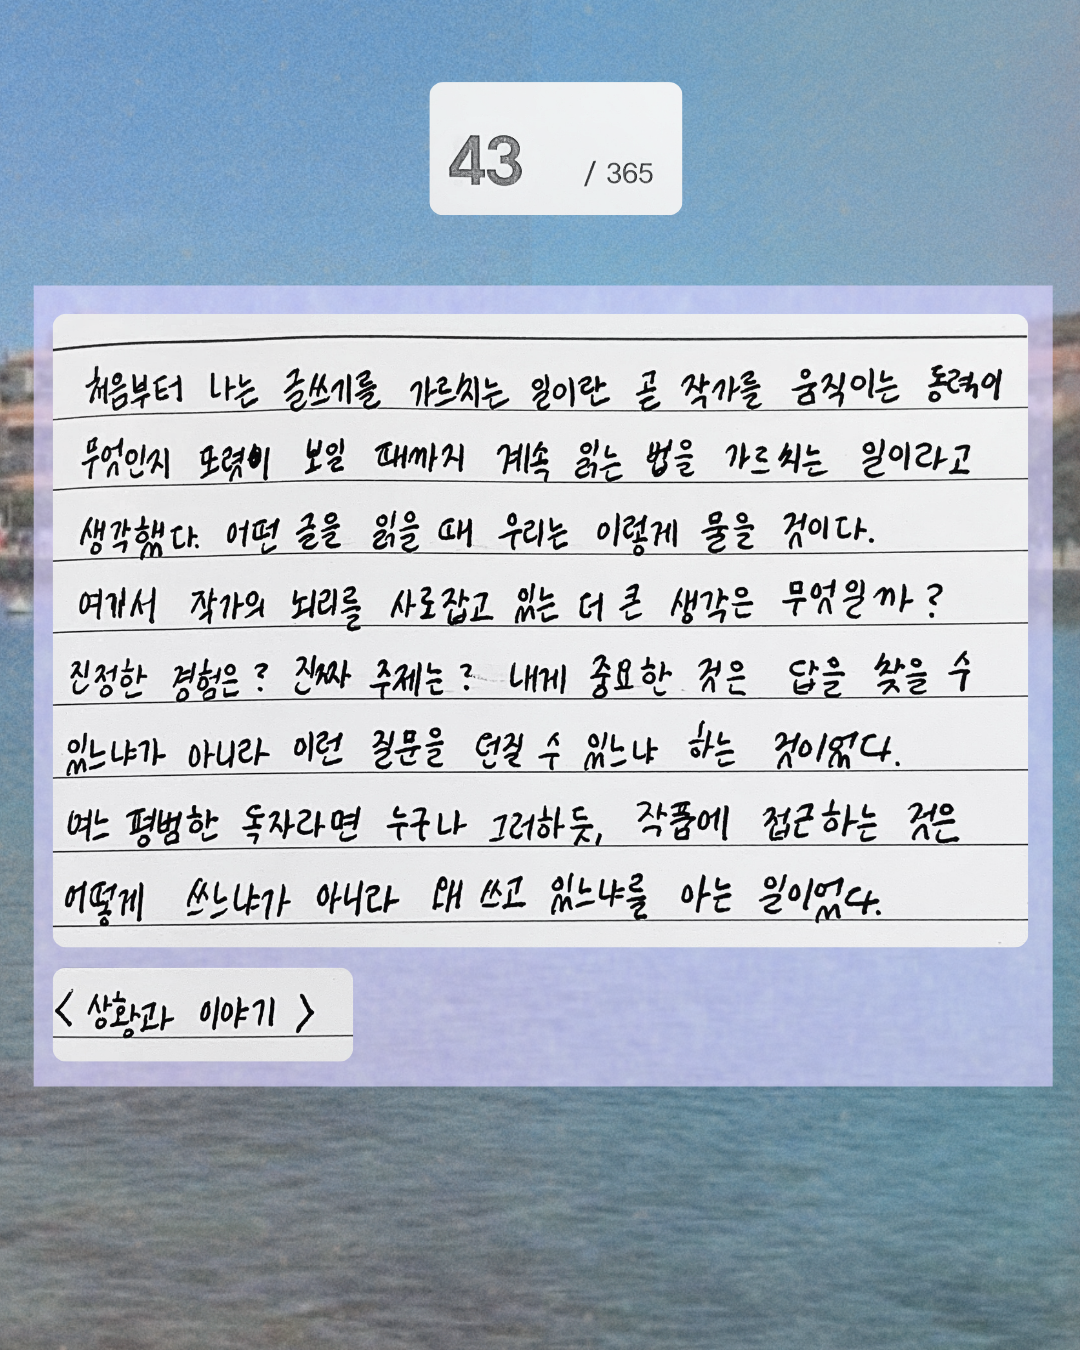 43 / 365
처음부터 나는 글쓰기를 가르치는 일이란 곧 작가를 움직이는 동력이
무엇인지 또렷이 보일 때까지 계속 읽는 법을 가르치는 일이라고
생각했다. 어떤 글을 읽을 때 우리는 이렇게 물을 것이다.
여기서 작가의 뇌리를 사로잡고 있는 더 큰 생각은 무엇일까?
진정한 경험은? 진짜 주제는? 내게 중요한 것은 답을 찾을 수
있느냐가 아니라 이런 질문을 던질 수 있느냐 하는 것이었다.
여느 평범한 독자라면 누구나 그러하듯, 작품에 접근하는 것은
어떻게 쓰느냐가 아니라 왜 쓰고 있느냐를 아는 일이었다.
< 상황과 이야기 >